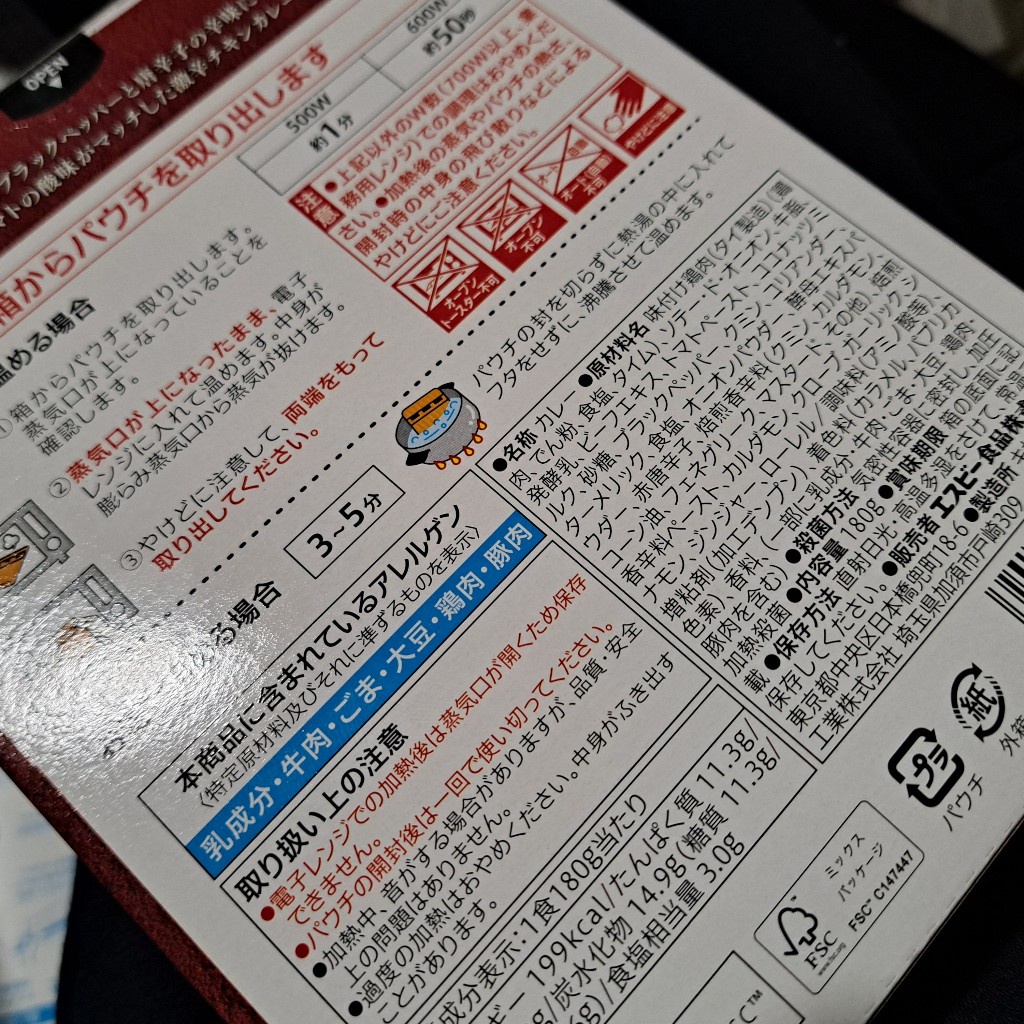 OPEN
ブラックペッパーと唐辛子の辛味に
トの酸味がマッチした激辛チキンカレー
箱からパウチを取り出します
温める場合
500W
約1分
600W
約50秒
①箱からパウチを取り出します。
蒸気口が上になっていることを
確認します。
②蒸気口が上になったまま、電子
レンジに入れて温めます。中身が
膨らみ蒸気口から蒸気が抜けます。
③やけどに注意して、両端をもって
取り出してください。
注意
●上記以外のW数(700W以上、業
務用レンジ)での調理はおやめくだ
さい。●加熱後の蒸気やパウチの熱さ、
開封時の中身の飛び散りなどによる
やけどにご注意ください。
オーブン
トースター不可
オーブン
不可
不可
やけどに注意
る場合
3~5分
パウチの封を切らずに熱湯の中に入れて
フタをせずに、沸騰させて温めます。
本商品に含まれているアレルゲン
(特定原材料及びそれに準ずるものを表示)
乳成分・牛肉・ごま・大豆・鶏肉・豚肉
取り扱い上の注意
●電子レンジでの加熱後は蒸気口が開くため保存
できません。
●パウチの開封後は一回で使い切ってください。
●加熱中、音がする場合がありますが、品質・安全
上の問題はありません。
●過度の加熱はおやめください。中身がふき出す
ことがあります。
成分表示:1食180g当たり
ギー 199kcal/たんぱく質 11.3g/
g/炭水化物 14.9g(糖質 11.3g/
6g)/食塩相当量 3.0g
●名称 カレー ●原材料名 味付け鶏肉(タイ製造)(鶏
肉、でん粉、食塩、タイム)、ソテー・ド・オニオン、牛脂、
発酵乳、ビーフエキス、トマトペースト、ココナッツミ
ルク、砂糖、ブラックペッパー、クミン、コリアンダー、
ターメリック、食塩、オニオンパウダー、酵母エキスパ
ウダー、赤唐辛子、焙煎香辛料(クミン、カルダモン、
香辛料ペースト、カルダモン、クローブ、ガーリック、シ
ナモン、ジンジャー、ローレル/調味料(アミノ酸等)、
増粘剤(加工デンプン)、着色料(カラメル、パプリカ
色素)、香料、(一部に乳成分・牛肉・ごま・大豆・鶏肉・
豚肉を含む) ●殺菌方法 気密性容器に密封し、加圧
加熱殺菌 ●内容量 180g ●賞味期限 箱の底面に記
載 ●保存方法 直射日光、高温多湿をさけて、
保存してください。 ●販売者 エスビー食品株
東京都中央区日本橋兜町18-6 ●製造所
工業株式会社 埼玉県加須市戸崎309
プラ
パウチ
紙
外箱
FSC
www.fsc.org
ミックス
パッケージ
FSC™ C147447